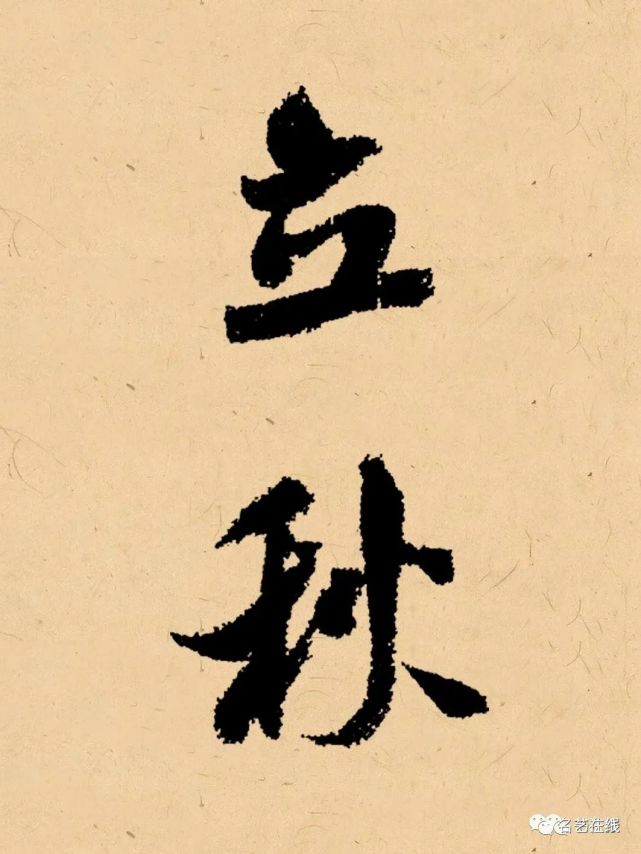 立
秋
名艺在线